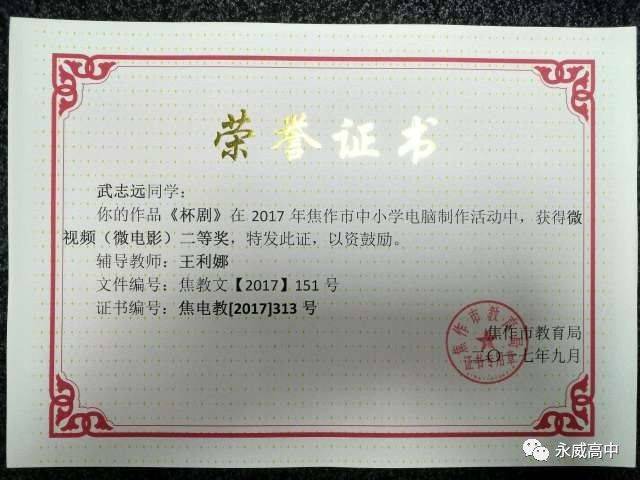 荣誉证书
武志远同学：
你的作品《杯剧》在 2017 年焦作市中小学电脑制作活动中，获得微
视频（微电影）二等奖，特发此证，以资鼓励。
辅导教师：王利娜
文件编号：焦教文【2017】151 号
证书编号：焦电教[2017]313 号
焦作市教育局
二〇一七年九月
焦作市教育局
永威高中